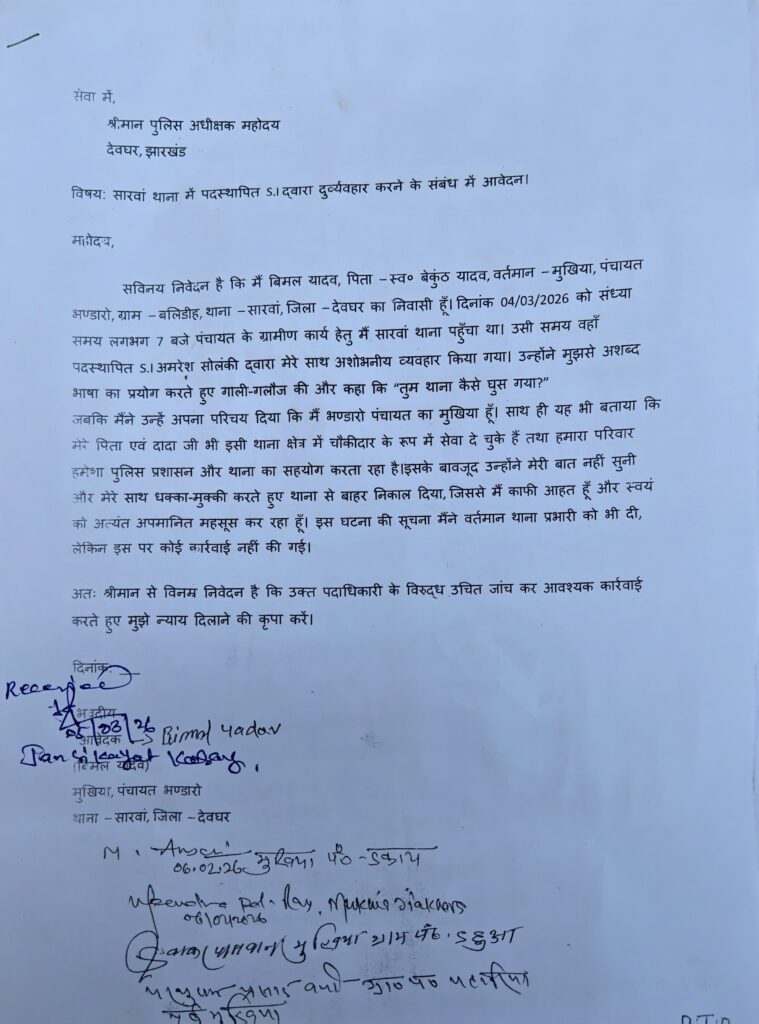 सेवा में,
श्रीमान पुलिस अधीक्षक महोदय
देवघर, झारखंड
विषय: सारवां थाना में पदस्थापित S.I द्वारा दुर्व्यवहार करने के संबंध में आवेदन।
महोदय,
सविनय निवेदन है कि मैं बिमल यादव, पिता – स्व० बेकुंठ यादव, वर्तमान – मुखिया, पंचायत
भण्डारो, ग्राम – बलिडीह, थाना – सारवां, जिला – देवघर का निवासी हूँ। दिनांक 04/03/2026 को संध्या
समय लगभग 7 बजे पंचायत के ग्रामीण कार्य हेतु मैं सारवां थाना पहुँचा था। उसी समय वहाँ
पदस्थापित S.I अमरेश सोलंकी द्वारा मेरे साथ अशोभनीय व्यवहार किया गया। उन्होंने मुझसे अशब्द
भाषा का प्रयोग करते हुए गाली-गलौज की और कहा कि “तुम थाना कैसे घुस गया?”
जबकि मैंने उन्हें अपना परिचय दिया कि मैं भण्डारो पंचायत का मुखिया हूँ। साथ ही यह भी बताया कि
मेरे पिता एवं दादा जी भी इसी थाना क्षेत्र में चौकीदार के रूप में सेवा दे चुके हैं तथा हमारा परिवार
हमेशा पुलिस प्रशासन और थाना का सहयोग करता रहा है।इसके बावजूद उन्होंने मेरी बात नहीं सुनी
और मेरे साथ धक्का-मुक्की करते हुए थाना से बाहर निकाल दिया, जिससे मैं काफी आहत हूँ और स्वयं
को अत्यंत अपमानित महसूस कर रहा हूँ। इस घटना की सूचना मैंने वर्तमान थाना प्रभारी को भी दी,
लेकिन इस पर कोई कार्रवाई नहीं की गई।
अतः श्रीमान से विनम्र निवेदन है कि उक्त पदाधिकारी के विरुद्ध उचित जांच कर आवश्यक कार्रवाई
करते हुए मुझे न्याय दिलाने की कृपा करें।
दिनांक
भवदीय
आवेदक Bimal Yadav
(बिमल यादव)
मुखिया, पंचायत भण्डारो
थाना – सारवां, जिला – देवघर
M. Ansari
06.02.26 मुखिया पं०
Upendra Ray, Mukhia
पासवान मुखिया ग्राम पं०
प्रसाद ग्रा० पं०
मुखिया
P.T.O